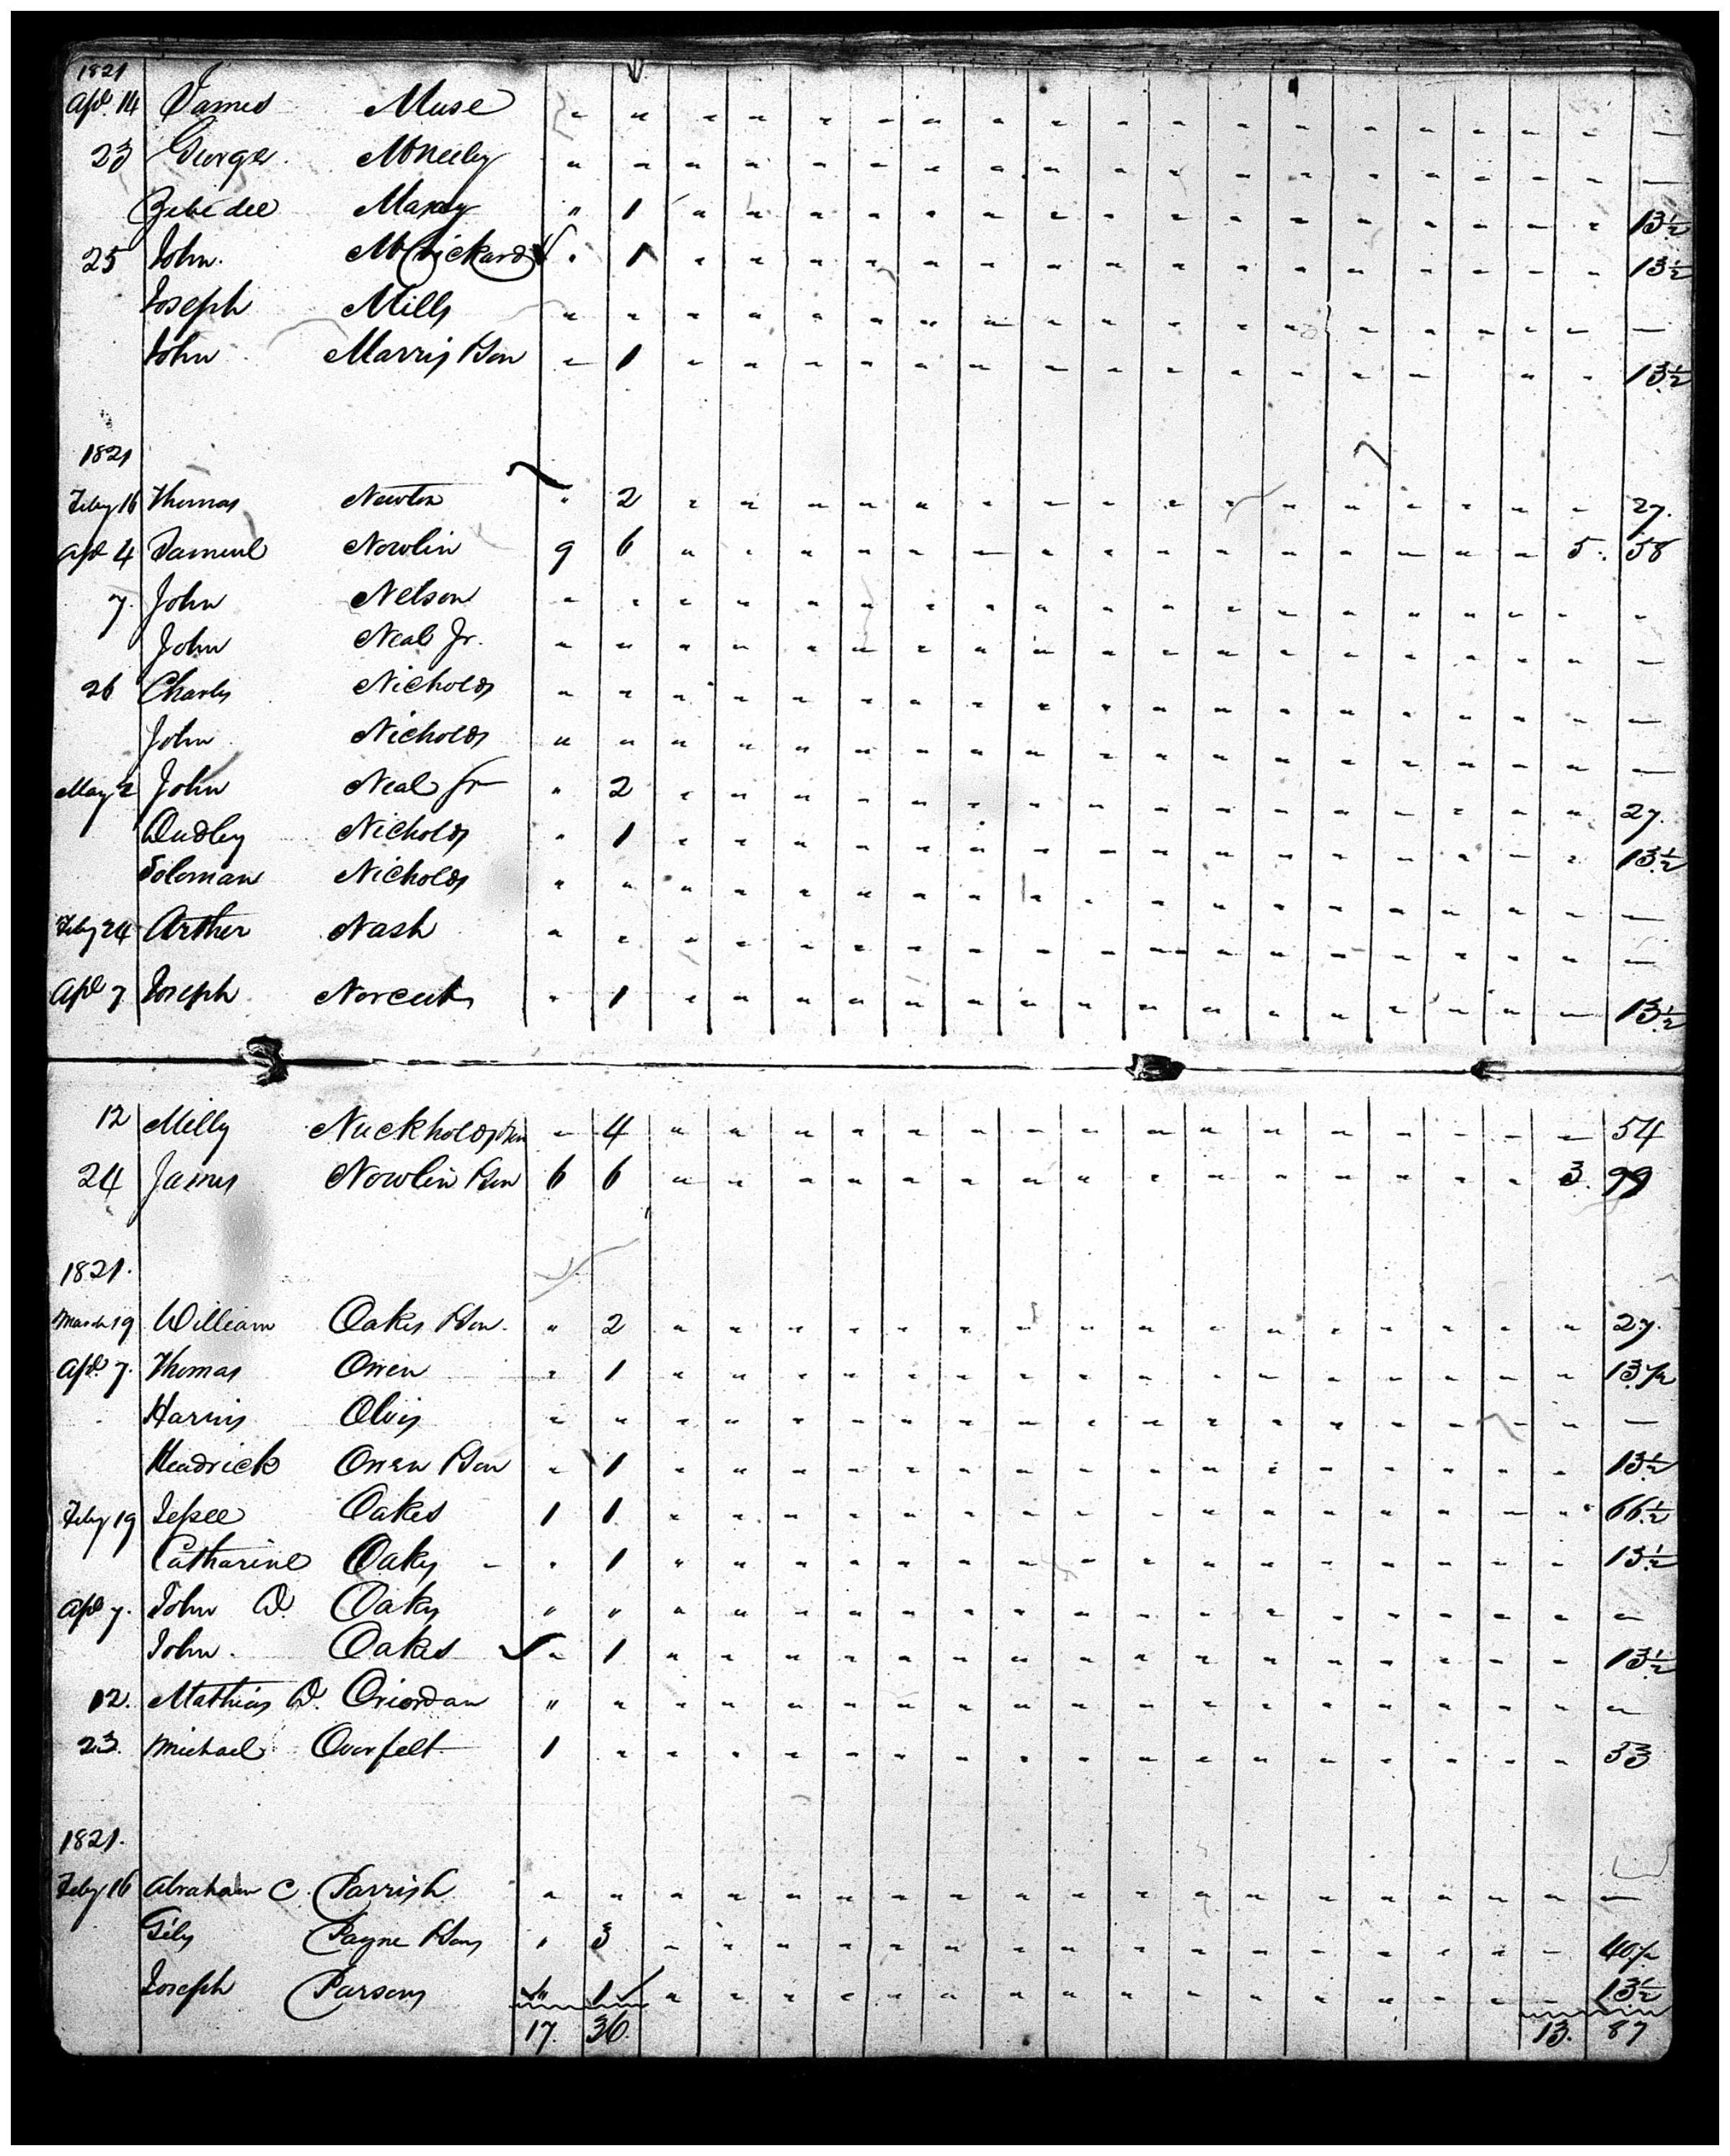 1821
Apl. 14 James Muse " " " " " " " " " " " " " " " " " " —
23 George McNeeley " " " " " " " " " " " " " " " " " " —
Zebedee Maxey " 1 " " " " " " " " " " " " " " " " 13½
25 John " 1 " " " " " " " " " " " " " " " " 13½
Joseph Mills " " " " " " " " " " " " " " " " " " —
John Marris Son " 1 " " " " " " " " " " " " " " " 13½
1821
Feby 16 Thomas Newton " 2 " " " " " " " " " " " " " " " " 27.
Apl 4 Samuel Nowlin 9 6 " " " " " " " " " " " " " " " 5. 58
7. John Nelson " " " " " " " " " " " " " " " " " " "
John Neal Jr. " " " " " " " " " " " " " " " " " " —
26 Charles Nicholds " " " " " " " " " " " " " " " " " " —
John Nicholds " " " " " " " " " " " " " " " " " " —
May 2 John Neal Jr " 2 " " " " " " " " " " " " " " " " 27.
Dudley Nicholds " 1 " " " " " " " " " " " " " " " " 13½
Soloman Nicholds " " " " " " " " " " " " " " " " " " —
Feby 24 Arther Nash " " " " " " " " " " " " " " " " " " —
Apl 7 Joseph Norcut " 1 " " " " " " " " " " " " " " " " 13½
12 Milly Nuckholds " 4 " " " " " " " " " " " " " " " " 54
24 James Nowlin Son 6 6 " " " " " " " " " " " " " " " 3. 99
1821.
March 19 William Oakes Son. " 2 " " " " " " " " " " " " " " " " 27.
Apl. 7. Thomas Owen " 1 " " " " " " " " " " " " " " " " 13½
Harris Olvis " " " " " " " " " " " " " " " " " " —
Hendrick Owen Son " 1 " " " " " " " " " " " " " " " " 13½
Feby 19 Jessee Oakes 1 1 " " " " " " " " " " " " " " " " 66½
Catharine Oakes " 1 " " " " " " " " " " " " " " " " 13½
Apl 7. John D. Oakes " " " " " " " " " " " " " " " " " " "
John. Oakes " 1 " " " " " " " " " " " " " " " " 13½
12. Mathias D. Oriordan " " " " " " " " " " " " " " " " " " "
23. Michael Overfelt 1 " " " " " " " " " " " " " " " " " 53
1821.
Feby 16 Abraham C. Parrish " " " " " " " " " " " " " " " " " " —
Giles Payne " 3 " " " " " " " " " " " " " " " " 40½
Joseph Parsons " 1 " " " " " " " " " " " " " " " 13½
17. 36. 13. 87